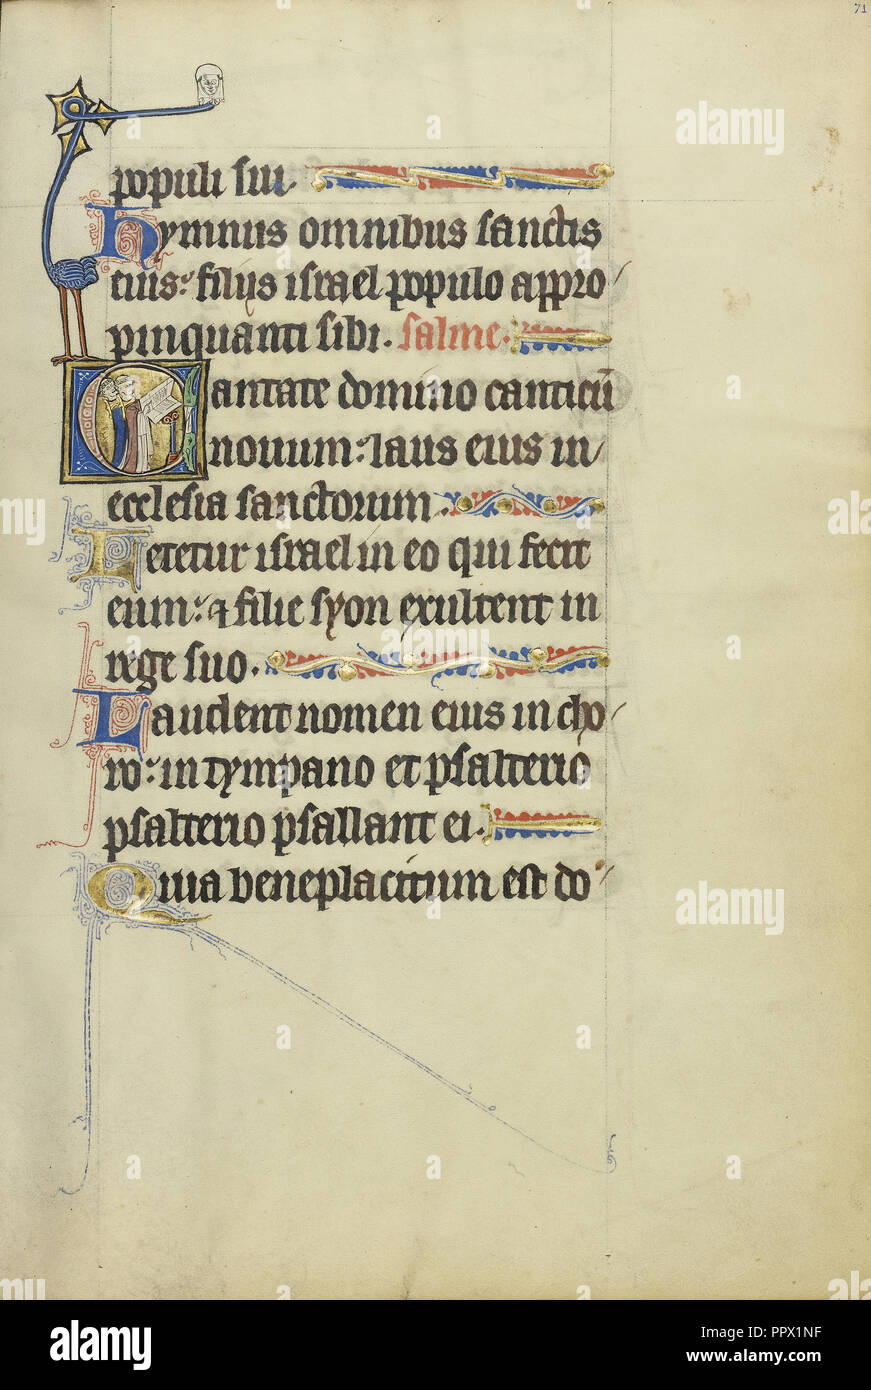 71
populi sui.
hymnus omnibus sanctis
eius: filijs israel populo appro
pinquanti sibi. salme.
Cantate domino canticū
nouum: laus eius in
ecclesia sanctorum.
Letetur israel in eo qui fecit
eum: ⁊ filie syon exultent in
rege suo.
Laudent nomen eius in cho
ro: in tympano et psalterio
psalterio psallant ei.
Quia beneplacitum est do
alamy
alamy
Image ID: PPX1NF
www.alamy.com